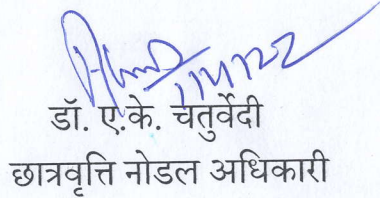 डॉ. ए.के. चतुर्वेदी
छात्रवृत्ति नोडल अधिकारी